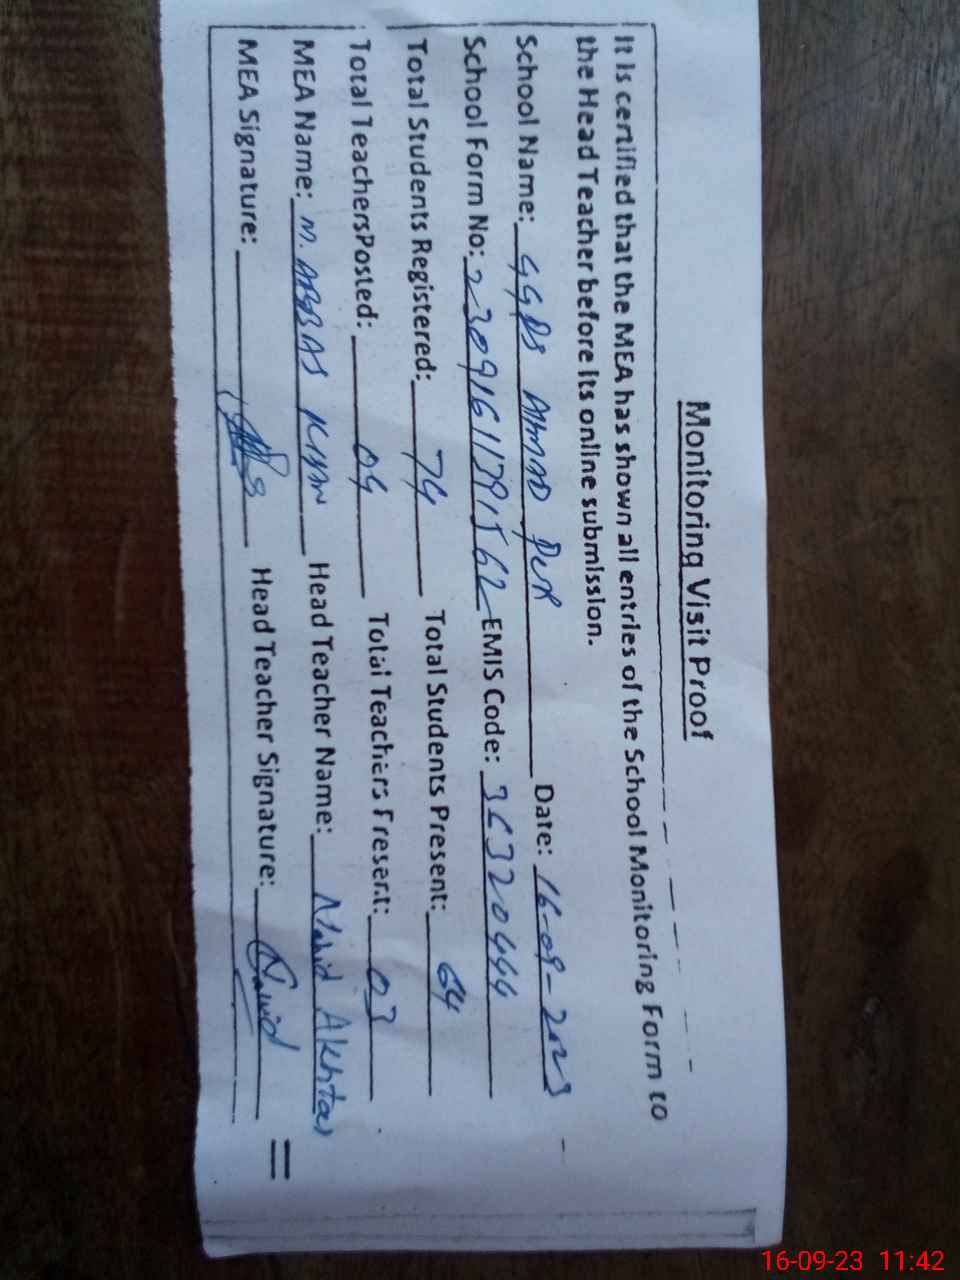 Monitoring Visit Proof
It is certified that the MEA has shown all entries of the School Monitoring Form to
the Head Teacher before its online submission.
School Name: GGPS AHMAD PUR Date: 16-09-2023
School Form No: 23091611391562 EMIS Code: 36320444
Total Students Registered: 74 Total Students Present: 64
Total TeachersPosted: 04 Total Teachers Present: 03
MEA Name: M. ABBAS KHAN Head Teacher Name: Nahid Akhtar
MEA Signature: Head Teacher Signature: Nawid
16-09-23 11:42